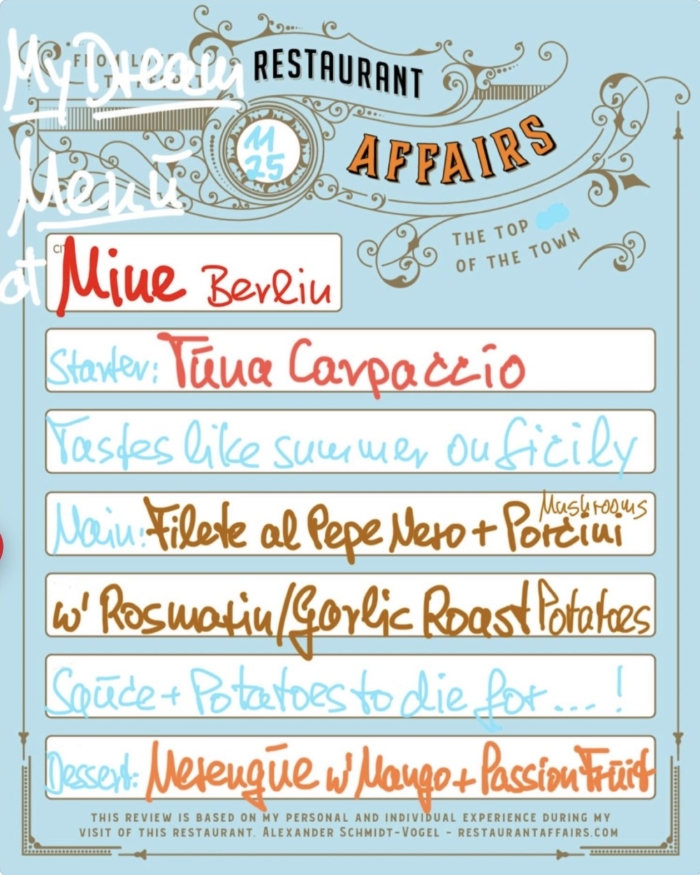 My Dream
RESTAURANT
11
25
AFFAIRS
Menü
THE TOP
OF THE TOWN
at Mine Berlin
Starter: Tuna Carpaccio
Tastes like summer on Sicily
Main: Filete al Pepe Nero + Porcini Mushrooms
w' Rosmarin/Garlic Roast Potatoes
Sauce + Potatoes to die for...!
Dessert: Merengue w' Mango + Passion Fruit
THIS REVIEW IS BASED ON MY PERSONAL AND INDIVIDUAL EXPERIENCE DURING MY
VISIT OF THIS RESTAURANT. ALEXANDER SCHMIDT-VOGEL - RESTAURANTAFFAIRS.COM